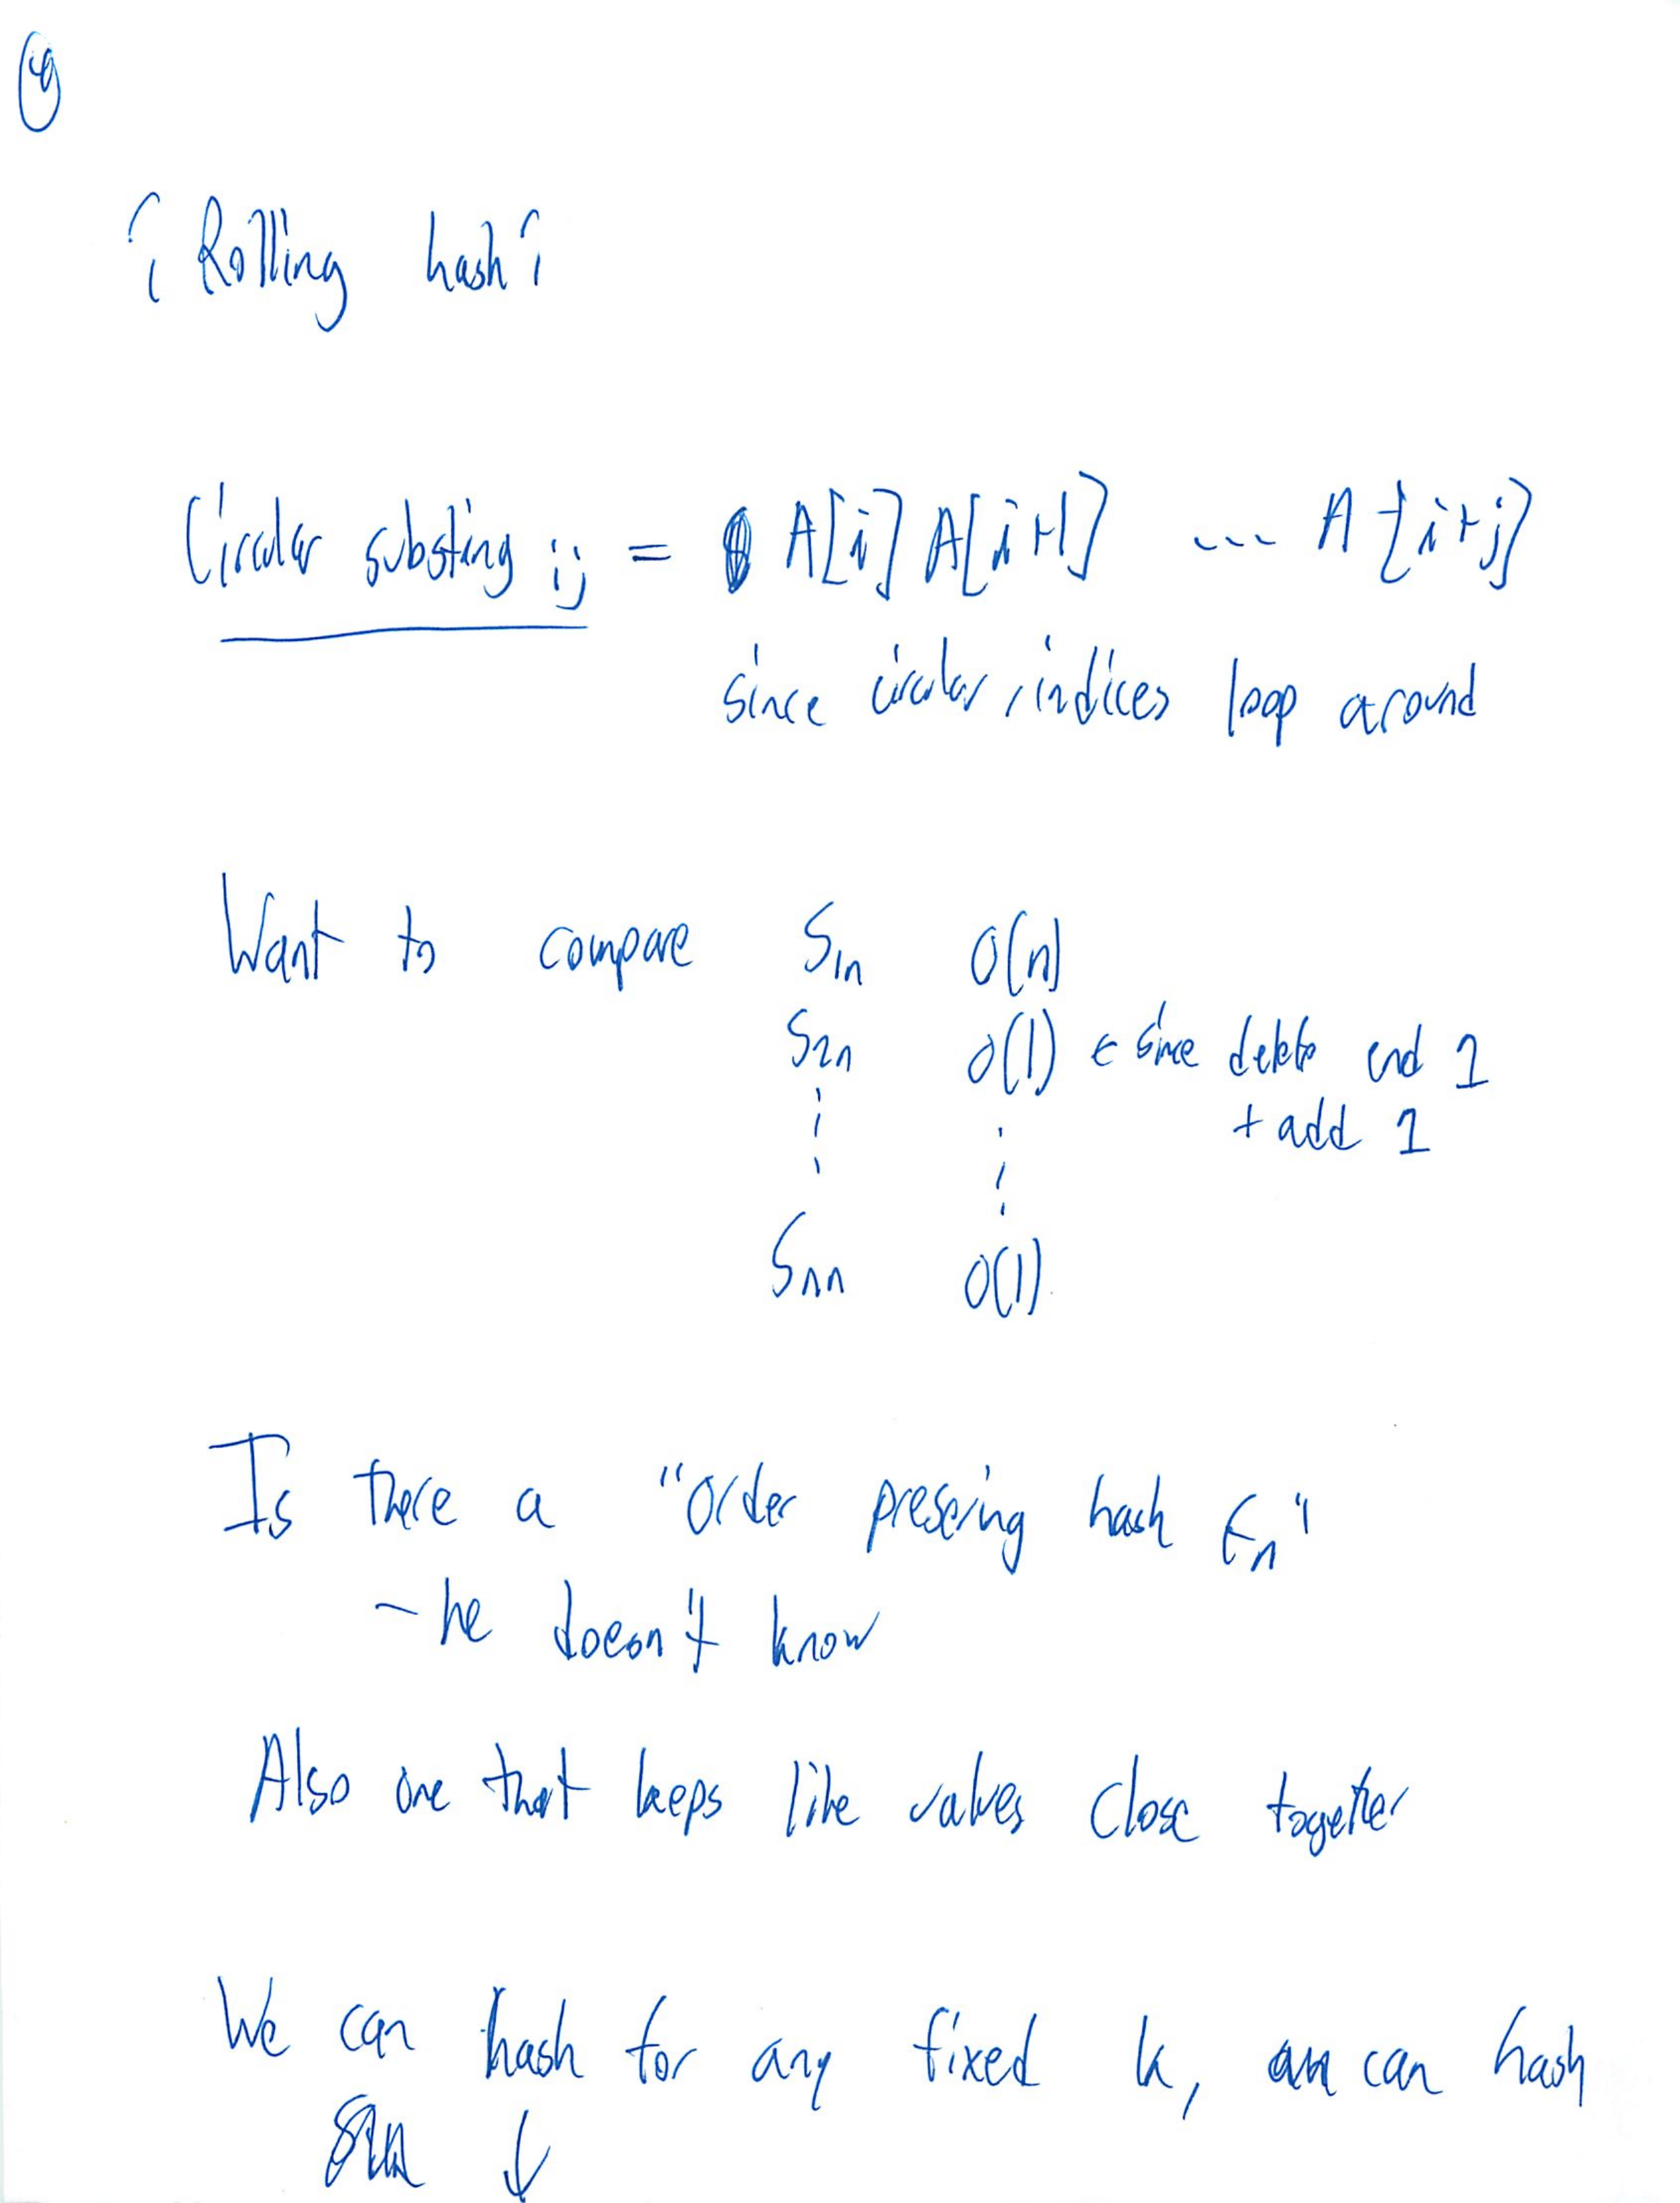 4
¿ Rolling hash ?
Circular substing ij = A[i] A[i+1] --- A[i+j]
since circular, indices loop around
Want to compare S1n O(n)
S2n O(1) ← since delete end 1
+ add 1
Snn O(1)
Is there a "order presering hash fn"
- he doesn't know
Also one that keeps like values close together
We can hash for any fixed k, can hash
↓